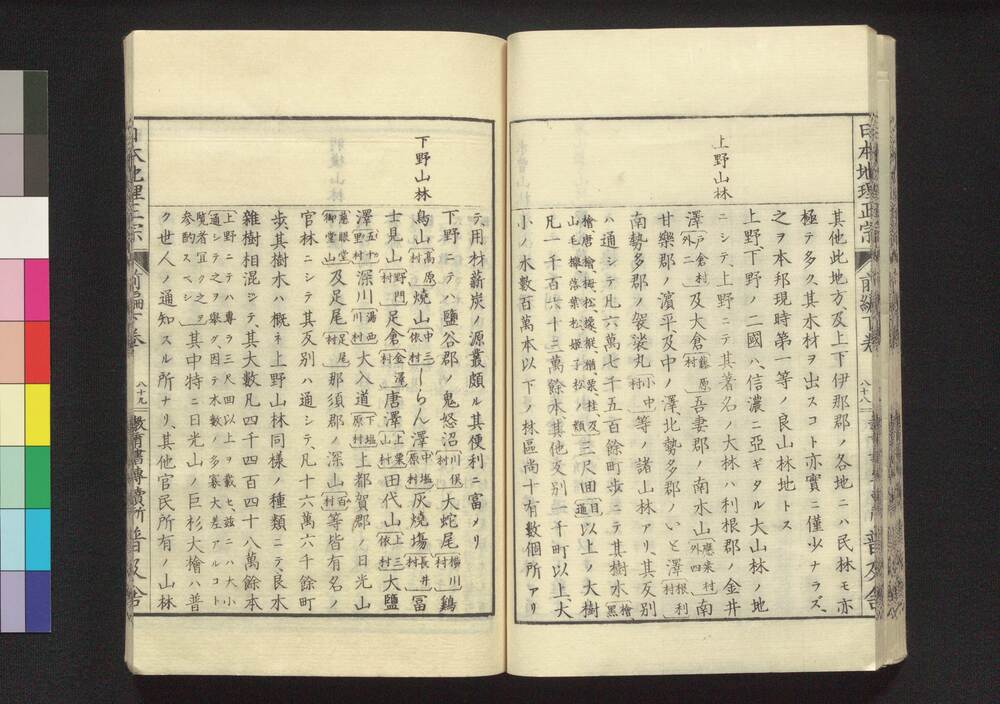 日本地理正宗
前編下巻
八十八
普及舍
上野山林
其他此地方及上下伊那郡ノ各地ニハ民林モ亦
極テ多ク、其木材ヲ出スコト亦實ニ僅少ナラズ、
之ヲ本邦現時第一等ノ良山林地トス
上野、下野ノ二國ハ、信濃ニ亞ギタル大山林ノ地
ニシテ、上野ニテ其著名ノ大林ハ利根郡ノ金井
澤戸倉村外二及大倉藤原村吾妻郡ノ南水山應桒村外四南
甘樂郡ノ濵平、及中ノ澤、北勢多郡ノいど澤根利村
南勢多郡ノ袈裟丸小中村等ノ諸山林アリ、其反別
ハ通シテ凡六萬七千五百餘町步ニテ其樹木檜黑
檜、唐檜、梅、松、櫟、樅、楢、栗、桂、及山毛欅、落葉松、姬子松ノ類三尺回目通以上ノ大樹
凡一千百六十二萬餘本、其他反別一千町以上、大
小ノ木數百萬本以下ノ林區尚十有數個所アリ
下野山林
テ、用材薪炭ノ源叢頗ル其便利ニ富メリ
下野ニテハ鹽谷郡ノ鬼怒沼川俣村大蛇尾横川村鷄
鳥山高原村燒山中三依村しらん澤中塩原村灰燒塲長井村冨
士見山野門村足倉金滝村唐澤上栗山村田代山上三依村大鹽
澤五十里村深川湯西川村大入道下塩原村上都賀郡ノ日光山
慈眼堂御堂山及足尾足尾村那須郡ノ深山百村等皆有名ノ
官林ニシテ其反別ハ通シテ、凡十六萬六千餘町
步、其樹木ハ概ネ上野山林同樣ノ種類ニテ、良木
雜樹相混シテ、其大數凡四千四百四十八萬餘本
上野ニテハ專ラ三尺四以上ヲ載セ、茲ニハ大小
通シテ之ヲ擧グ、因テ木數ノ多寡大差アルコト
覧者宜ク之ヲ參酌スベシ其中特ニ日光山ノ巨杉大檜ハ普
ク世人ノ通知スル所ナリ、其他官民所有ノ山林
日本地理正宗
前編下巻
八十九
教育書專賣所
普及舍